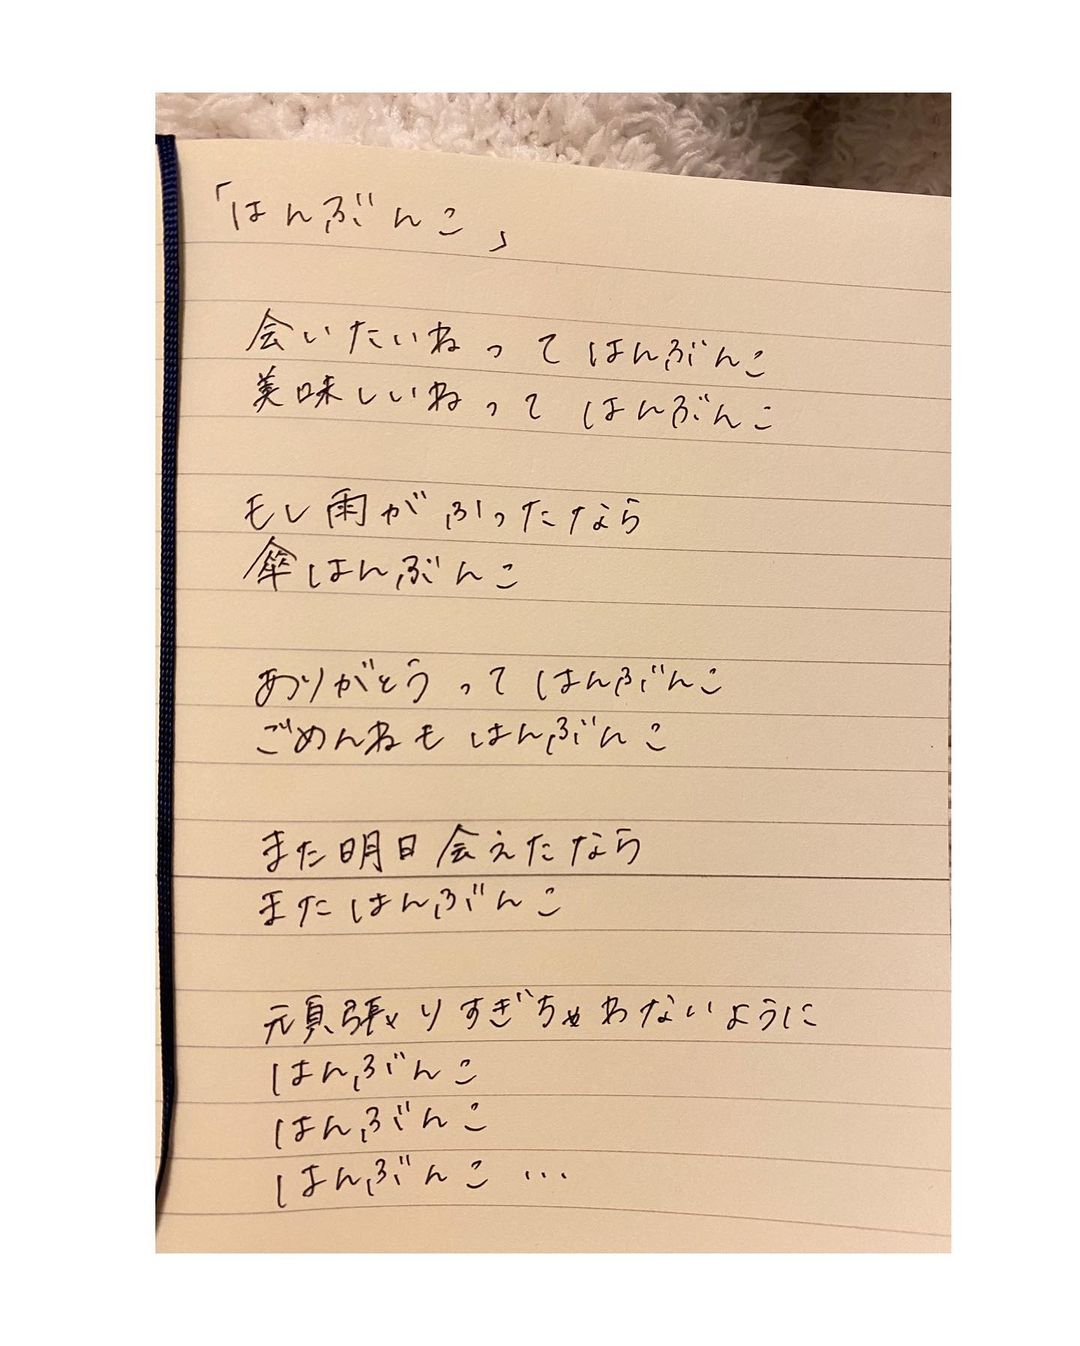 「はんぶんこ」
会いたいねって はんぶんこ
美味しいねって はんぶんこ
もし雨がふったなら
傘はんぶんこ
ありがとうって はんぶんこ
ごめんねも はんぶんこ
また明日会えたなら
またはんぶんこ
頑張りすぎちゃわないように
はんぶんこ
はんぶんこ
はんぶんこ...